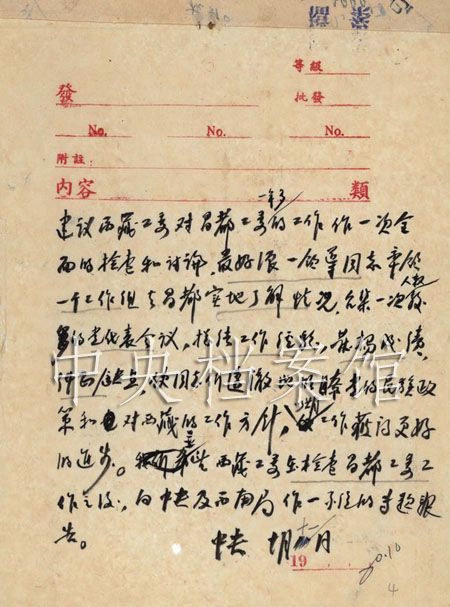 等級
發
批發
No. No. No.
附註:
內容 類
一年多
建议西藏工委对昌都工委的工作作一次全
面的检查和讨论,最好派一领导同志率领
一个工作组去昌都实地了解情况,召集一次较
人数
多的党代表会议,总结工作经验,发扬成绩,
纠正缺点,使同志们透彻地了解党的民族政
策和对西藏的工作方针,使工作获得更好
的进步。望西藏工委在检查昌都工委工
作之后,向中央及西南局作一系统的专题报
告。
中央 十二月
19
中央档案馆